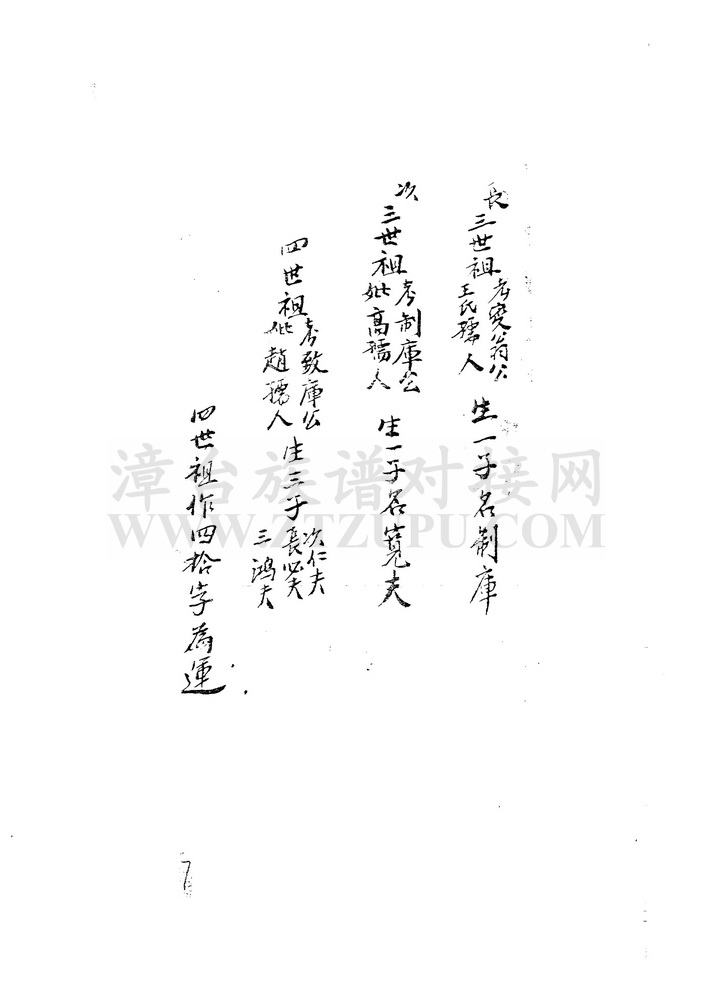 長三世祖考寔翁公
王氏孺人
生一子名制庫
次三世祖考制庫公
妣高孺人
生一子名寬夫
四世祖考致庫公
妣趙孺人
生三子長必夫
次仁夫
三鴻夫
四世祖作四拾字為運
漳台族谱对接网
WWW.ZTZUPU.COM
7